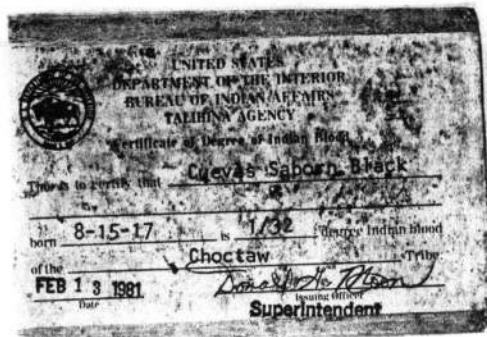 UNITED STATES
DEPARTMENT OF THE INTERIOR
BUREAU OF INDIAN AFFAIRS
TALIHINA AGENCY
Certificate of Degree of Indian Blood
This is to certify that Cuevas Saborn Black
born 8-15-17 is 1/32 degree Indian blood
of the Choctaw Tribe
FEB 13 1981 Donald G. Moon
Date Issuing Officer
Superintendent